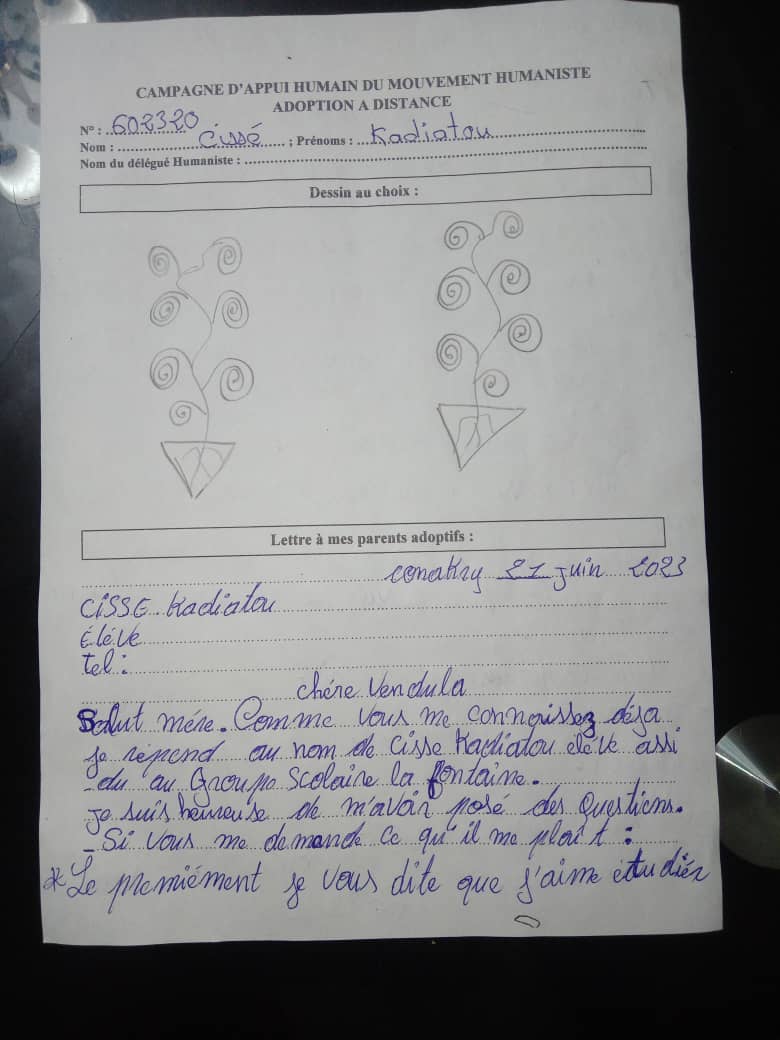 CAMPAGNE D'APPUI HUMAIN DU MOUVEMENT HUMANISTE
ADOPTION A DISTANCE
N° : 602320
Nom : Cissé ; Prénoms : Kadiatou
Nom du délégué Humaniste :
Dessin au choix :
Lettre à mes parents adoptifs :
Conakry 21 juin 2023
CISSE Kadiatou
Élève
tel :
chére Vendula
Salut mére. Comme vous me connaissez déja
je répend au nom de Cisse Kadiatou éléve assi
-du au Groupe Scolaire la fontaine.
je suis heureuse de m'avoir posé des questions.
- Si vous me demande ce qu'il me plait :
* Le premiément je vous dite que j'aime étudiér